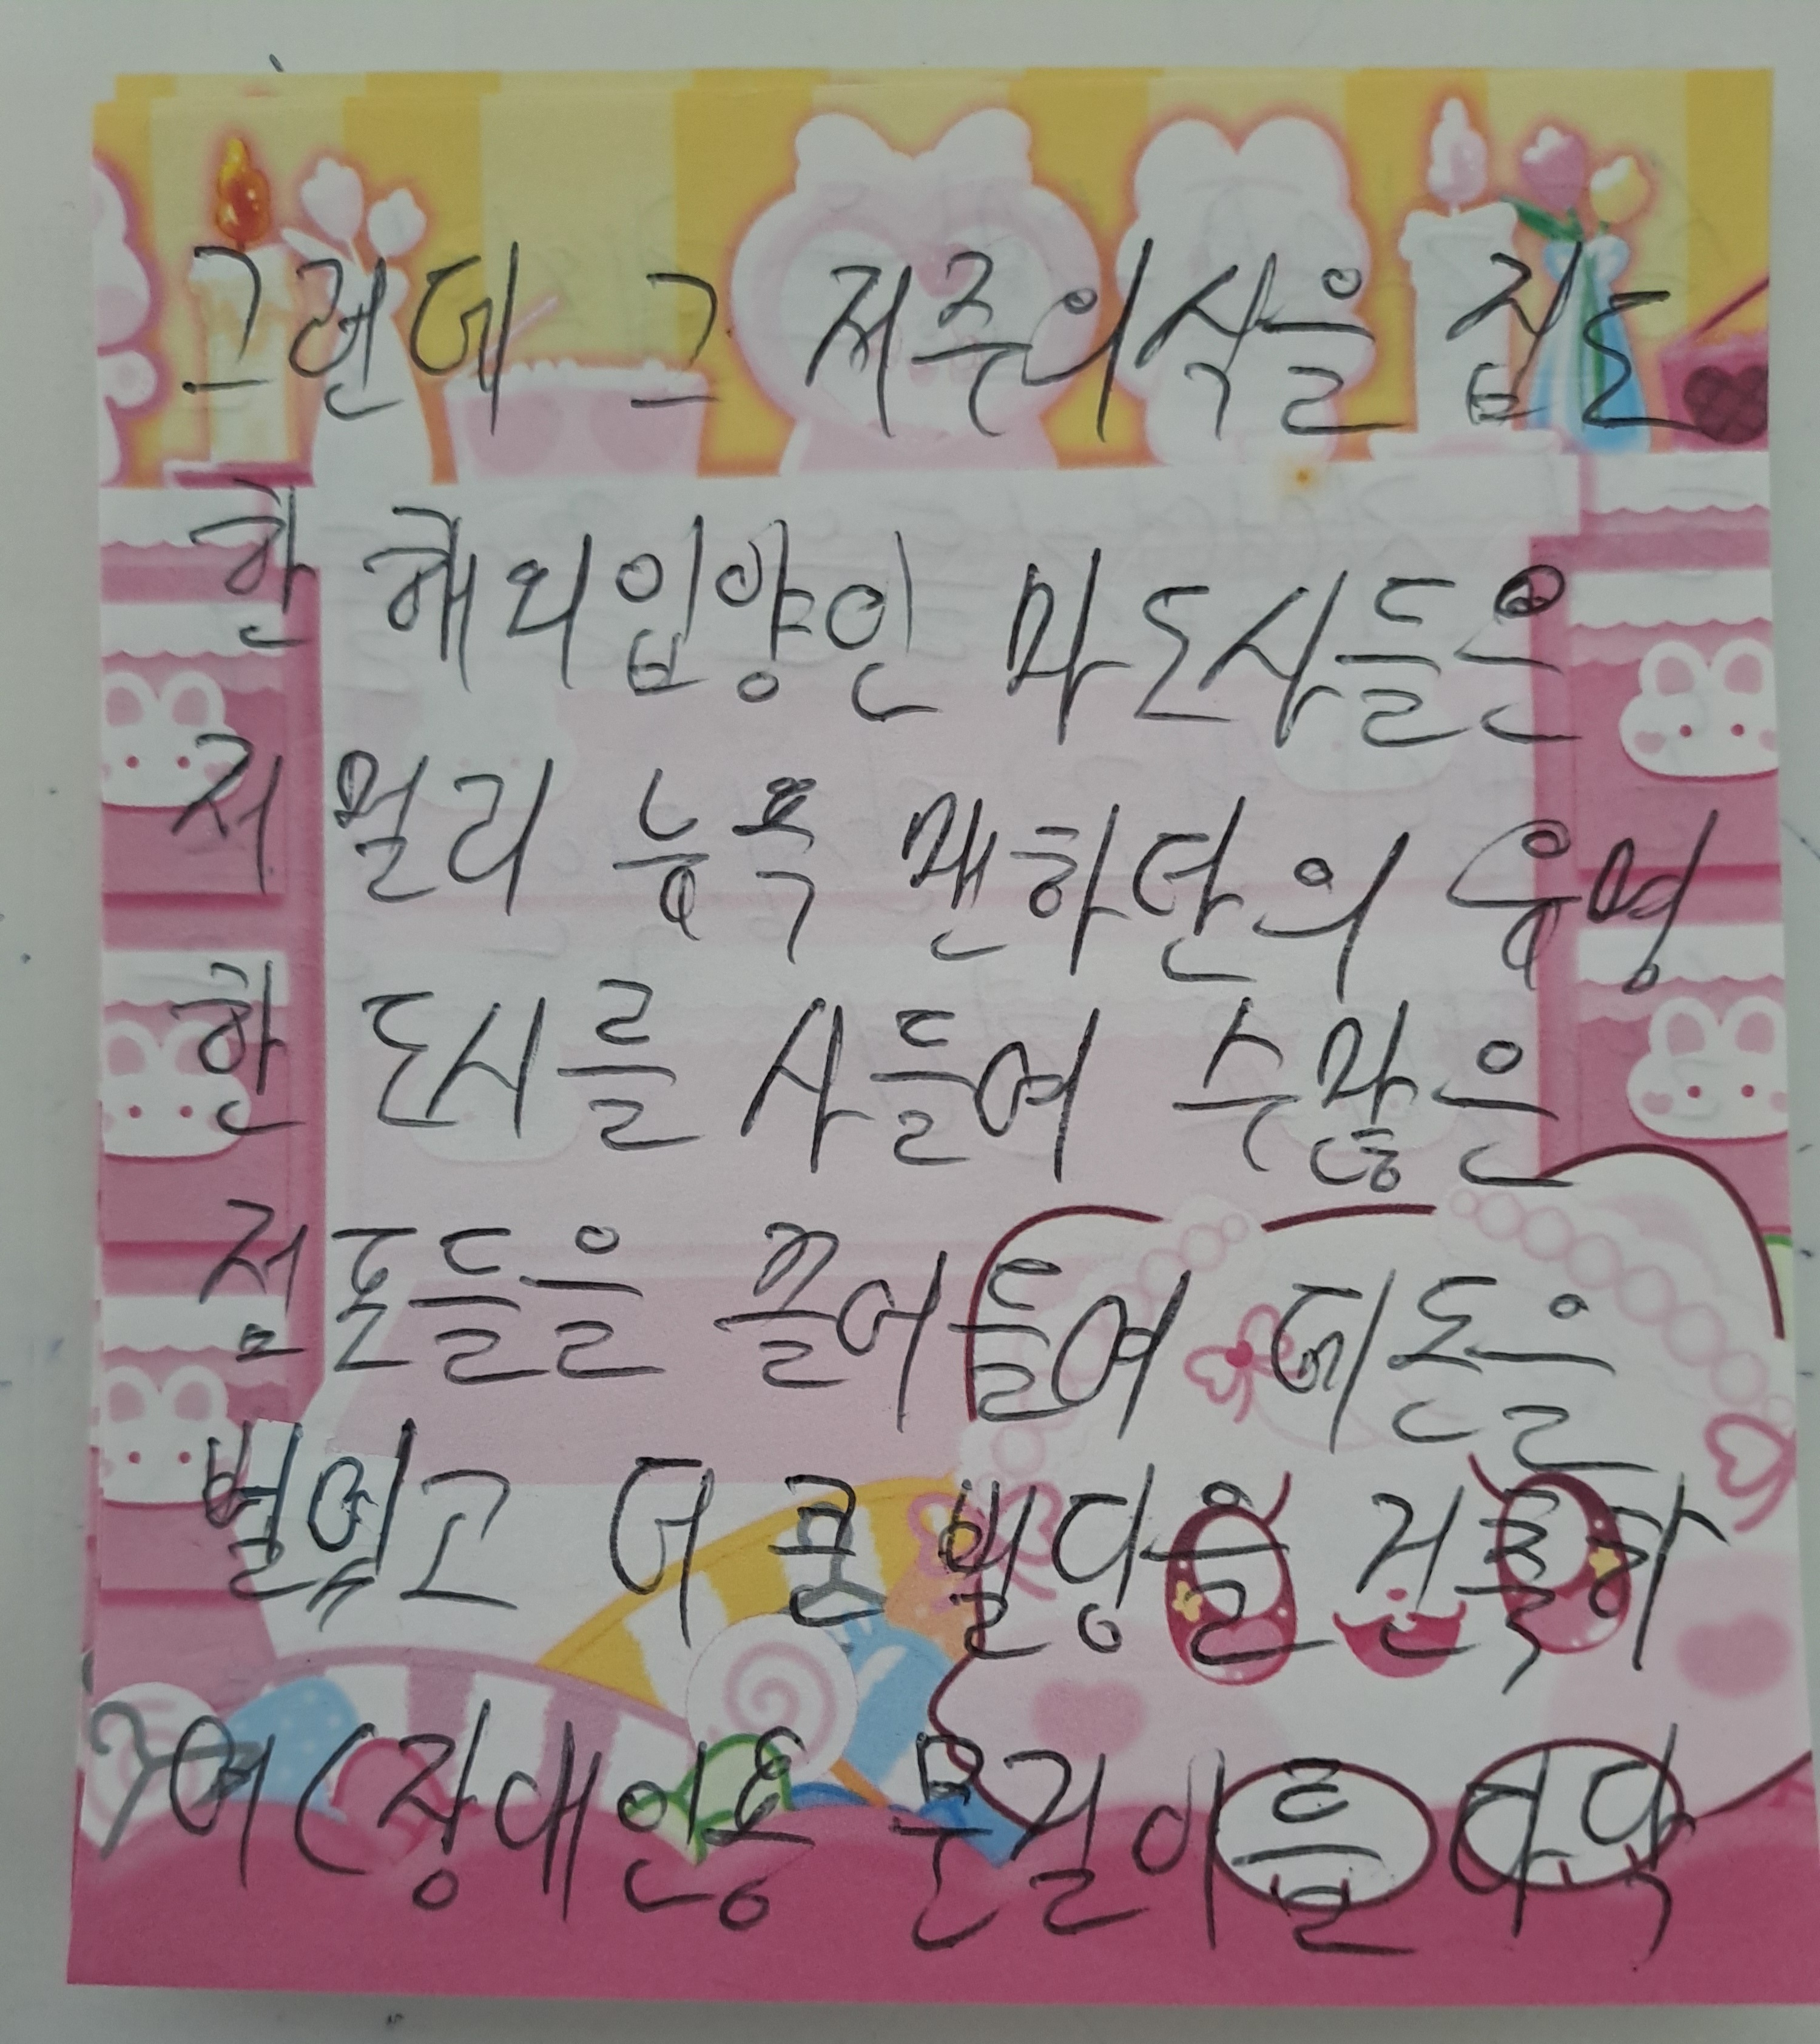 그런데 그 저주의식을 집도
한 해외입양인 마도사들은
저 멀리 뉴욕 맨하탄의 유명
한 도시를 사들여 수많은
점포들을 끌어들여 떼돈을
벌었고 더 큰 빌딩을 건축하
여 (장대인용 문걸이를